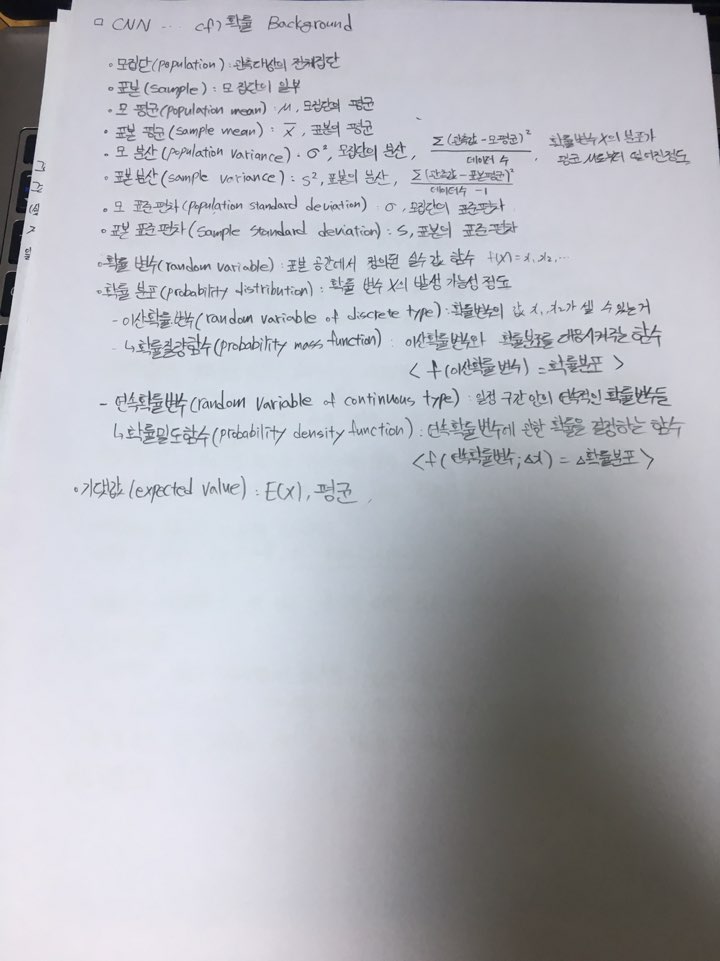 □ CNN ... cf) 확률 Background
◦ 모집단(population) : 관측대상의 전체집단
◦ 표본(sample) : 모집단의 일부
◦ 모 평균(population mean) : μ, 모집단의 평균
◦ 표본 평균(sample mean) : x̄, 표본의 평균
◦ 모 분산(population variance) : σ², 모집단의 분산, Σ(관측값-모평균)² / 데이터 수, 확률변수 X의 분포가 평균 μ로부터 떨어진정도
◦ 표본분산(sample variance) : s², 표본의 분산, Σ(관측값-표본평균)² / 데이터수 -1
◦ 모 표준편차(population standard deviation) : σ, 모집단의 표준편차
◦ 표본 표준편차(sample standard deviation) : s, 표본의 표준편차
◦ 확률 변수(random variable) : 표본 공간에서 정의된 실수 값 함수 f(x)=x₁,x₂,...
◦ 확률 분포(probability distribution) : 확률 변수 X의 발생 가능성 정도
- 이산확률변수(random variable of discrete type) : 확률변수의 값 x₁, x₂가 셀 수 있는거
↳ 확률질량함수(probability mass function) : 이산확률변수와 확률분포를 대응시켜주는 함수
< f(이산확률변수) = 확률분포 >
- 연속확률변수(random variable of continuous type) : 일정 구간 안의 연속적인 확률변수들
↳ 확률밀도함수(probability density function) : 연속확률변수에 관한 확률을 결정하는 함수
< f(연속확률변수; Δx) = Δ확률분포 >
◦ 기댓값(expected value) : E(x), 평균